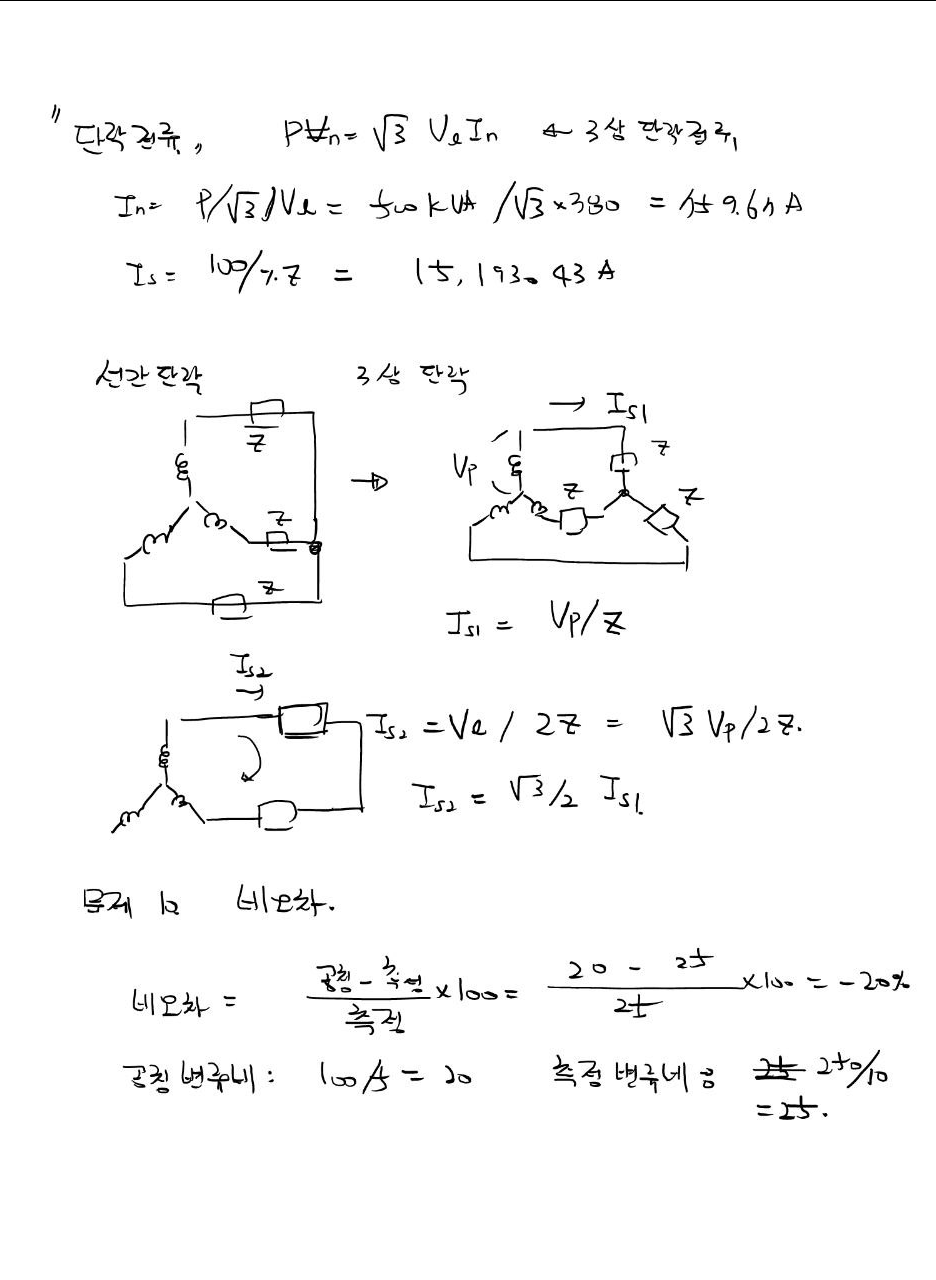 " 단락전류, Pn= √3 Vl In ← 3상 단락전류
In= P/√3/Vl = 500kVA /√3×380 = 759.67 A
Is = 100/%Z = 15,193.43 A
선간 단락 3상 단락
→ Is1
Z Z
Vp Z Z
Z
Z
Is1 = Vp/Z
Is2
→
Is2 = Vl / 2Z = √3 Vp/2Z.
Is2 = √3/2 Is1
문제 12 비오차.
비오차 = 공칭-측정/측정 ×100 = 20 - 25/25 ×100 = -20%
공칭 변류비 : 100/5 = 20 측정 변류비 : 250/10
= 25.